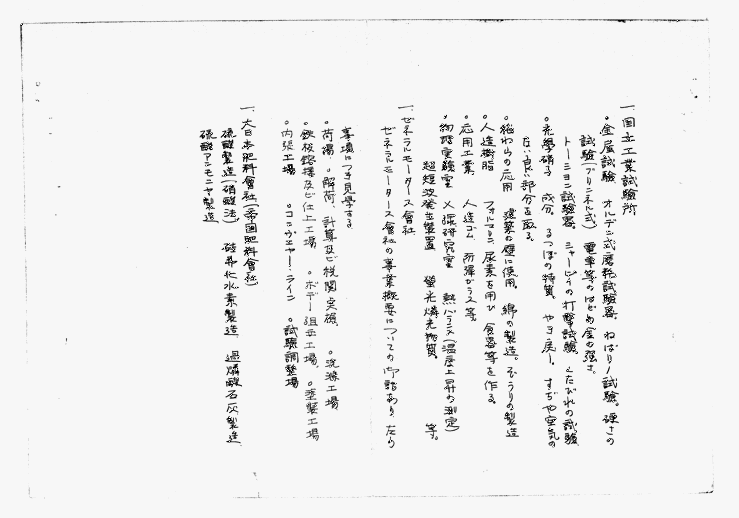 一、国立工業試験所
。金属試験 オルデン式磨耗試験器 ねばり試験。硬さの
試験(ブリンネル式) 電車等のはどめ金の強さ。
トーション試験器、シャーピーの打撃試験。くたびれの試験
。光学硝子 成分、るつぼの特質、やき戻し、すぢや空気の
ない良い部分を取る。
。稲わらの応用 建築の壁に使用、綿の製造。ぞうりの製造
。人造樹脂 フォルマリン、尿素を用ひ 食器等を作る。
。応用工業、 人造ゴム、 等。
。物理実験室 人 研究室 熱バランス(温度上昇の測定)
超短波発生装置 螢光燐光物質、 等。
一、ゼネラルモータース会社
ゼネラルモータース会社の事業概要についての御話あり、左の
事項につき見学する。
。荷揚。解荷、計算及び税関 。洗滌工場
。鉄板鎔接及び仕上工場 。ボデー組立工場、。塗装工場
。内張工場 。コンヴェヤー・ライン 。試験調整場
一、大日本肥料會社(帝国肥料會社)
硫酸製造(硝酸法) 硅弗化水素製造 過燐酸石灰製造
硫酸アンモニヤ製造